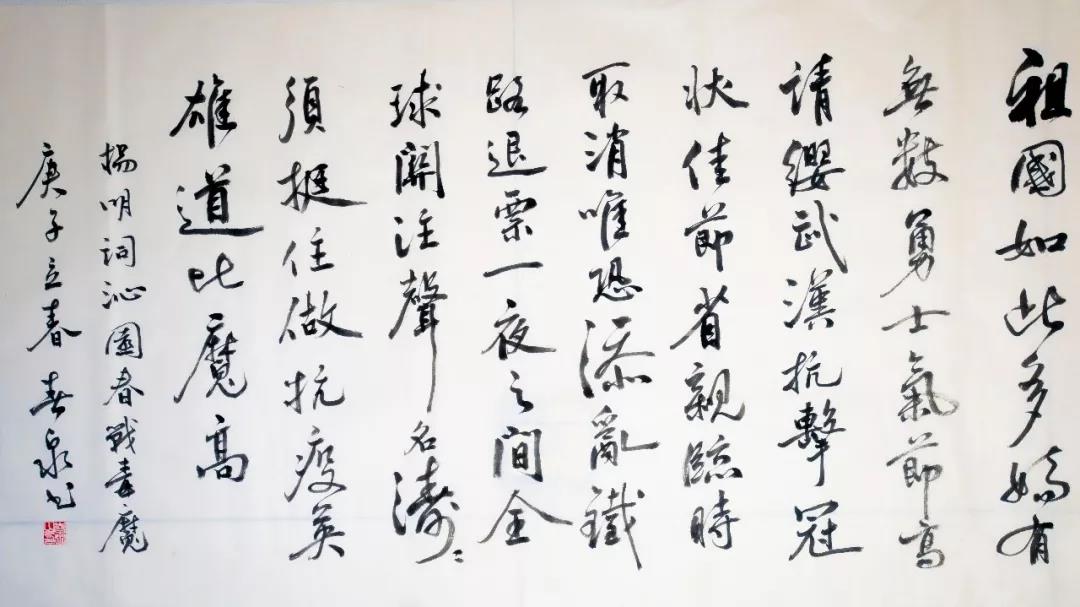 祖國如此多嬌有
無數勇士氣節高
請纓武漢抗擊冠
狀佳節省親臨時
取消唯恐添亂鐵
路退票一夜之間全
球關注聲名濤〻
須挺住做抗疫英
雄道比魔高
揚明詞沁園春戰毒魔
庚子立春春泉书